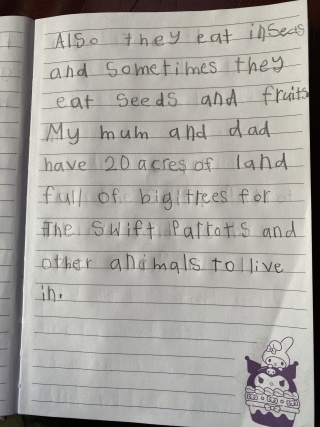 Also they eat insects
and sometimes they
eat seeds and fruits
My mum and dad
have 20 acres of land
full of big trees for
The Swift Parrots and
other animals to live
in.